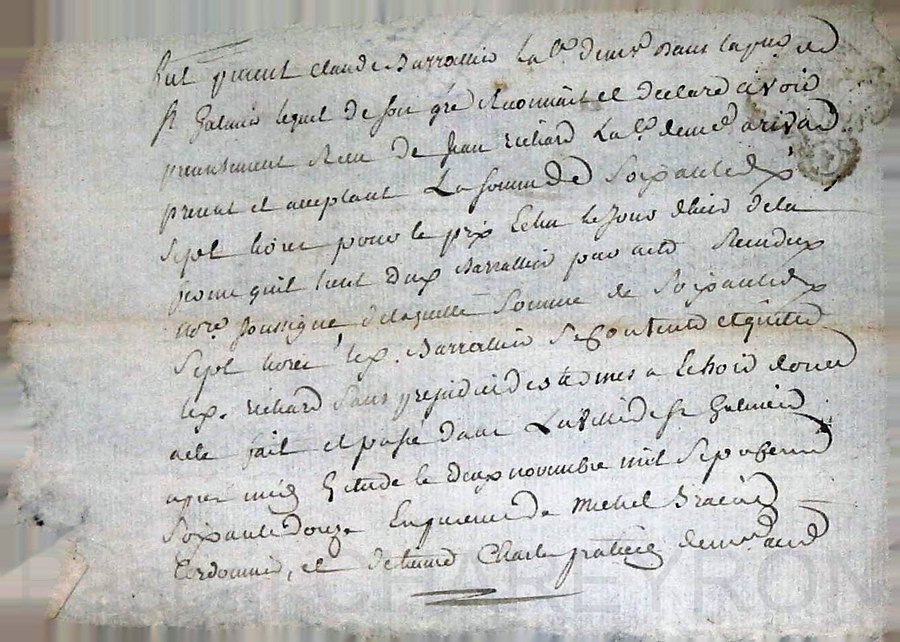 fut present Claude Barrallier La.b. demr. dans la par. de
st Galmier lequel de son gré Reconnait et declare avoir
presentement Receu de Jean Richard La.b. demr. a
present et acceptant La somme de Soixante dix
Sept livres pour le prix Echu le Jour d'hier de la
ferme quil tient dud. Barrallier par acte Receu dud.
nore. soussigné de laquelle Somme de Soixante dix
Sept livres led. Barrallier Se Contente et quitte
led. Richard Sans prejudice des termes a Echoir donné
acte fait et passé dans La ville de st Galmier
apres midy Etude le deux novembre mil Sept cent
Soixante douze En presence de Michel
Cordonnier, et de Charle praticien demr. aud.
PEREYRON